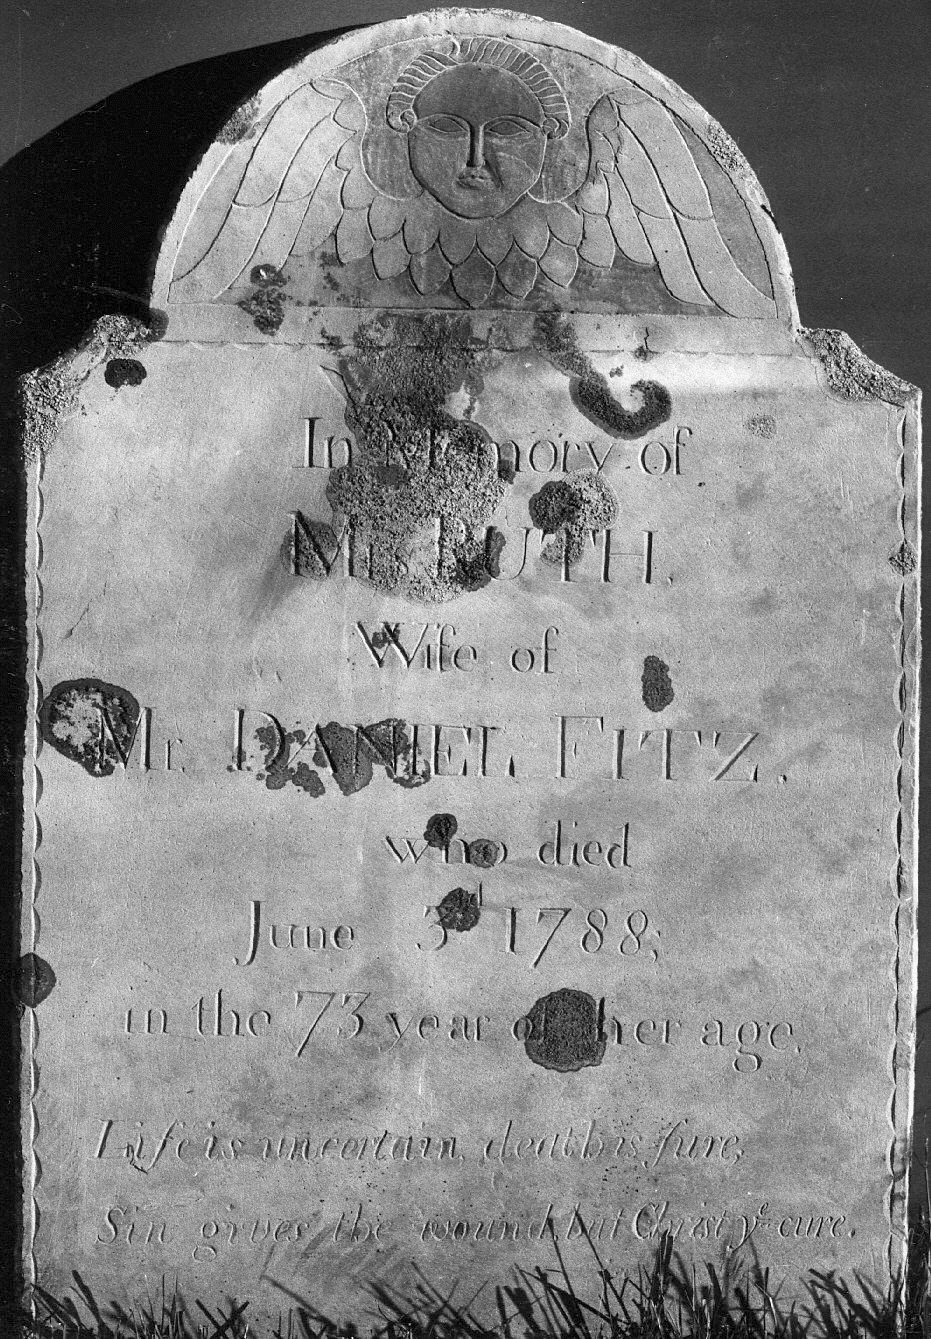 In Memory of
Mrs RUTH.
Wife of
Mr. DANIEL FITZ.
who died
June 3d 1788;
in the 73 year of her age.
Life is uncertain, death is ſure;
Sin gives the wound, but Christ ye cure.